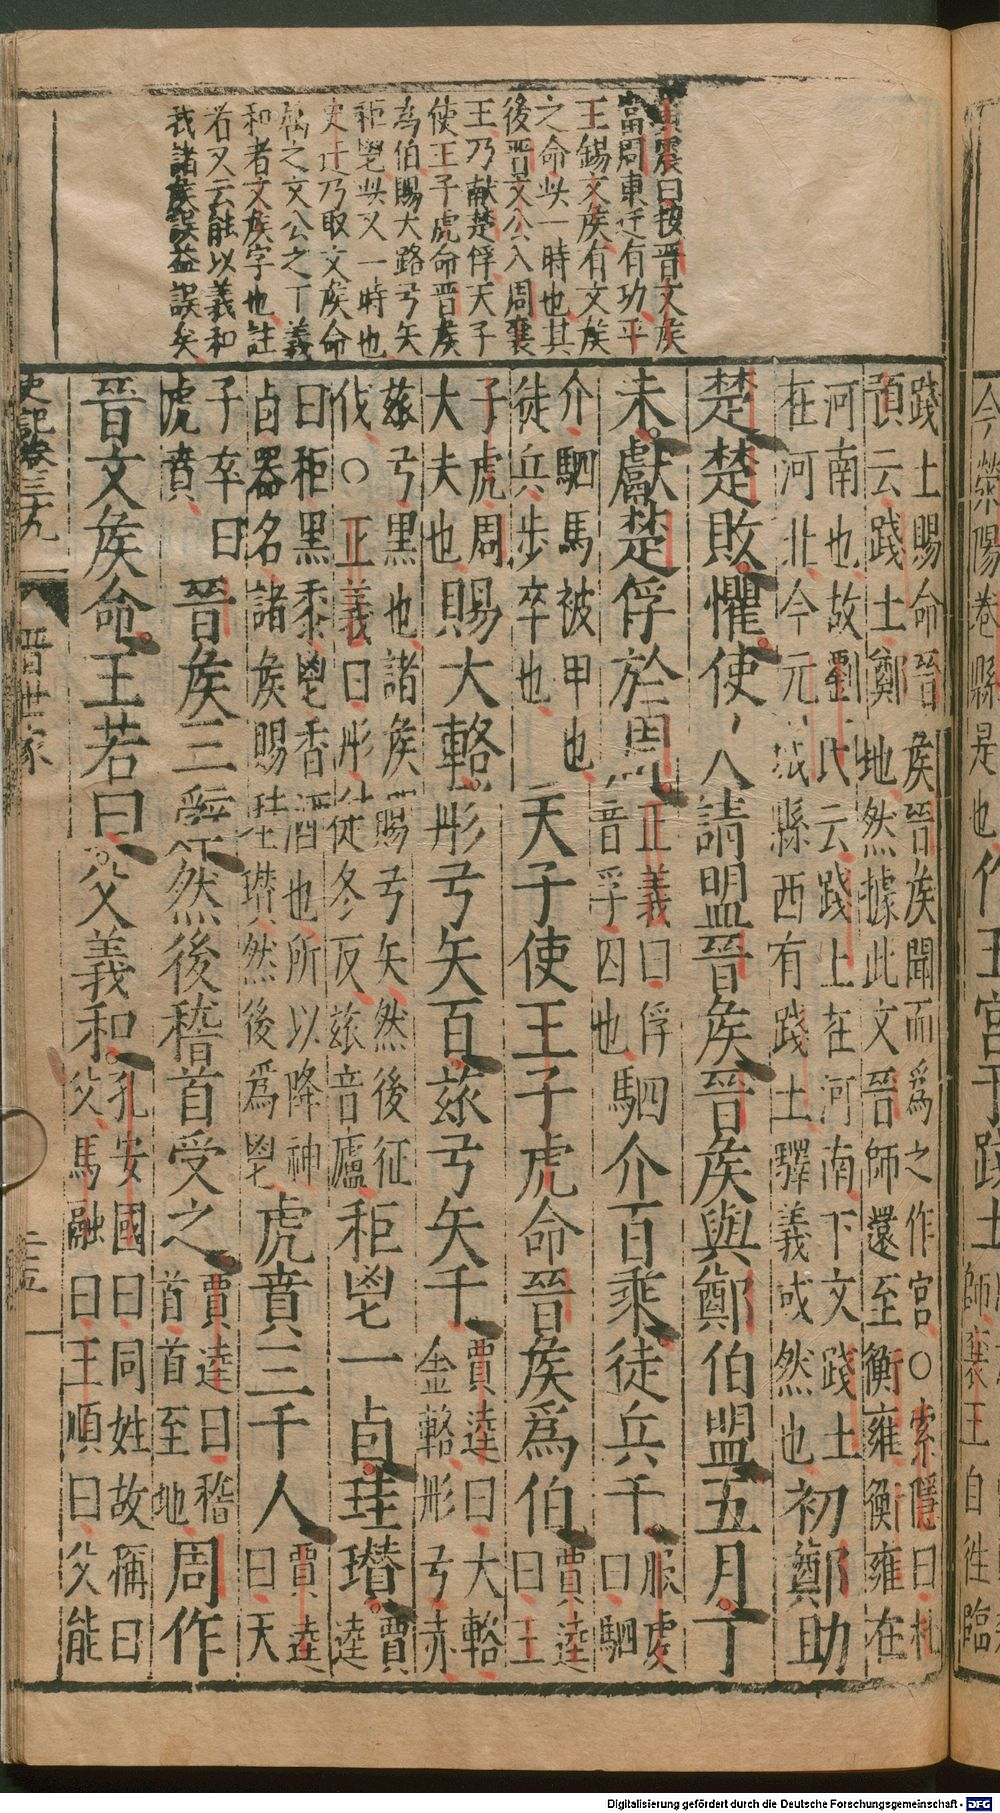 寅震曰按晋文矦
當周東迁有功平
王錫文矦有文矦
之命此一時也其
後晋文公入周襄
王乃献楚俘天子
使王子虎命晋矦
為伯賜大路弓矢
秬鬯此又一時也
史迁乃取文矦命
属之文公之下義
和者文矦字也註
若又云能以義和
我諸矦誤益誤矣
踐土賜命晉矦晉矦聞而爲之作宮○索隱曰杜
預云踐土鄭地然據此文晉師還至衡雍衡雍在
河南也故劉氏云踐土在河南下文踐土
在河北今元城縣西有踐土驛義或然也
初鄭助
楚楚敗懼使人請盟晉矦晉矦與鄭伯盟五月丁
未獻楚俘於周
正義曰俘
音孚囚也
駟介百乘徒兵千
服虔
曰駟
介駟馬被甲也
徒兵步卒也
天子使王子虎命晉矦爲伯
賈逵
曰王
子虎周
大夫也
賜大輅彤弓矢百玈弓矢千
賈逵曰大輅
金輅彤弓赤
玈弓黑也諸矦賜弓矢然後征
伐○正義曰彤徒冬反玈音廬
秬鬯一卣珪瓚
賈
逵
曰秬黑黍鬯香酒也所以降神
卣器名諸矦賜珪瓚然後爲鬯
虎賁三千人
賈逵
曰天
子卒曰
虎賁
晉矦三辭然後稽首受之
賈逵曰稽
首首至地
周作
晉文矦命王若曰父義和
孔安國曰同姓故稱曰
父馬融曰王順曰父能
史記卷三十九
晋世家
二十五
今滎陽卷縣是也作王宮于踐土
師襄王自徃臨
Digitalisierung gefördert durch die Deutsche Forschungsgemeinschaft - DFG